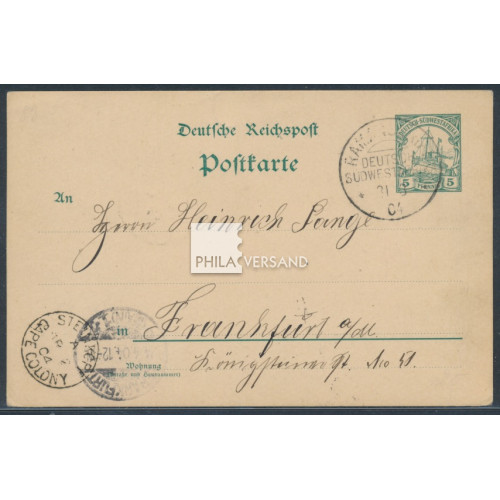 Deutsche Reichspost
Postkarte
DEUTSCH-SÜDWESTAFRIKA
5 PFENNIG 5
DEUTSCH
SÜDWEST
04
An
Herrn Heinrich Lange
PHILA VERSAND
in Frankfurt a/M
Wohnung
(Straße und Hausnummer)
Königsteinerstr. No
STEINKOPF
CAPE COLONY
04